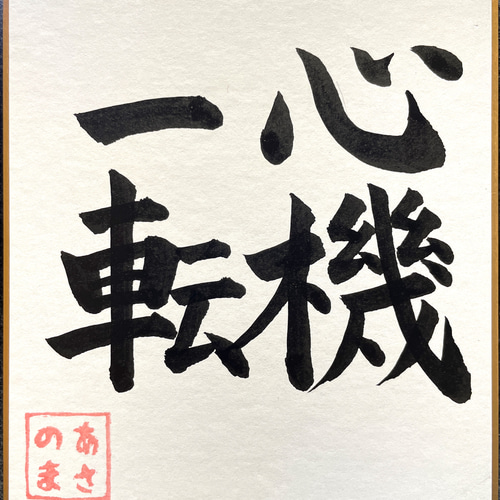 心機
一転
あさ
のま